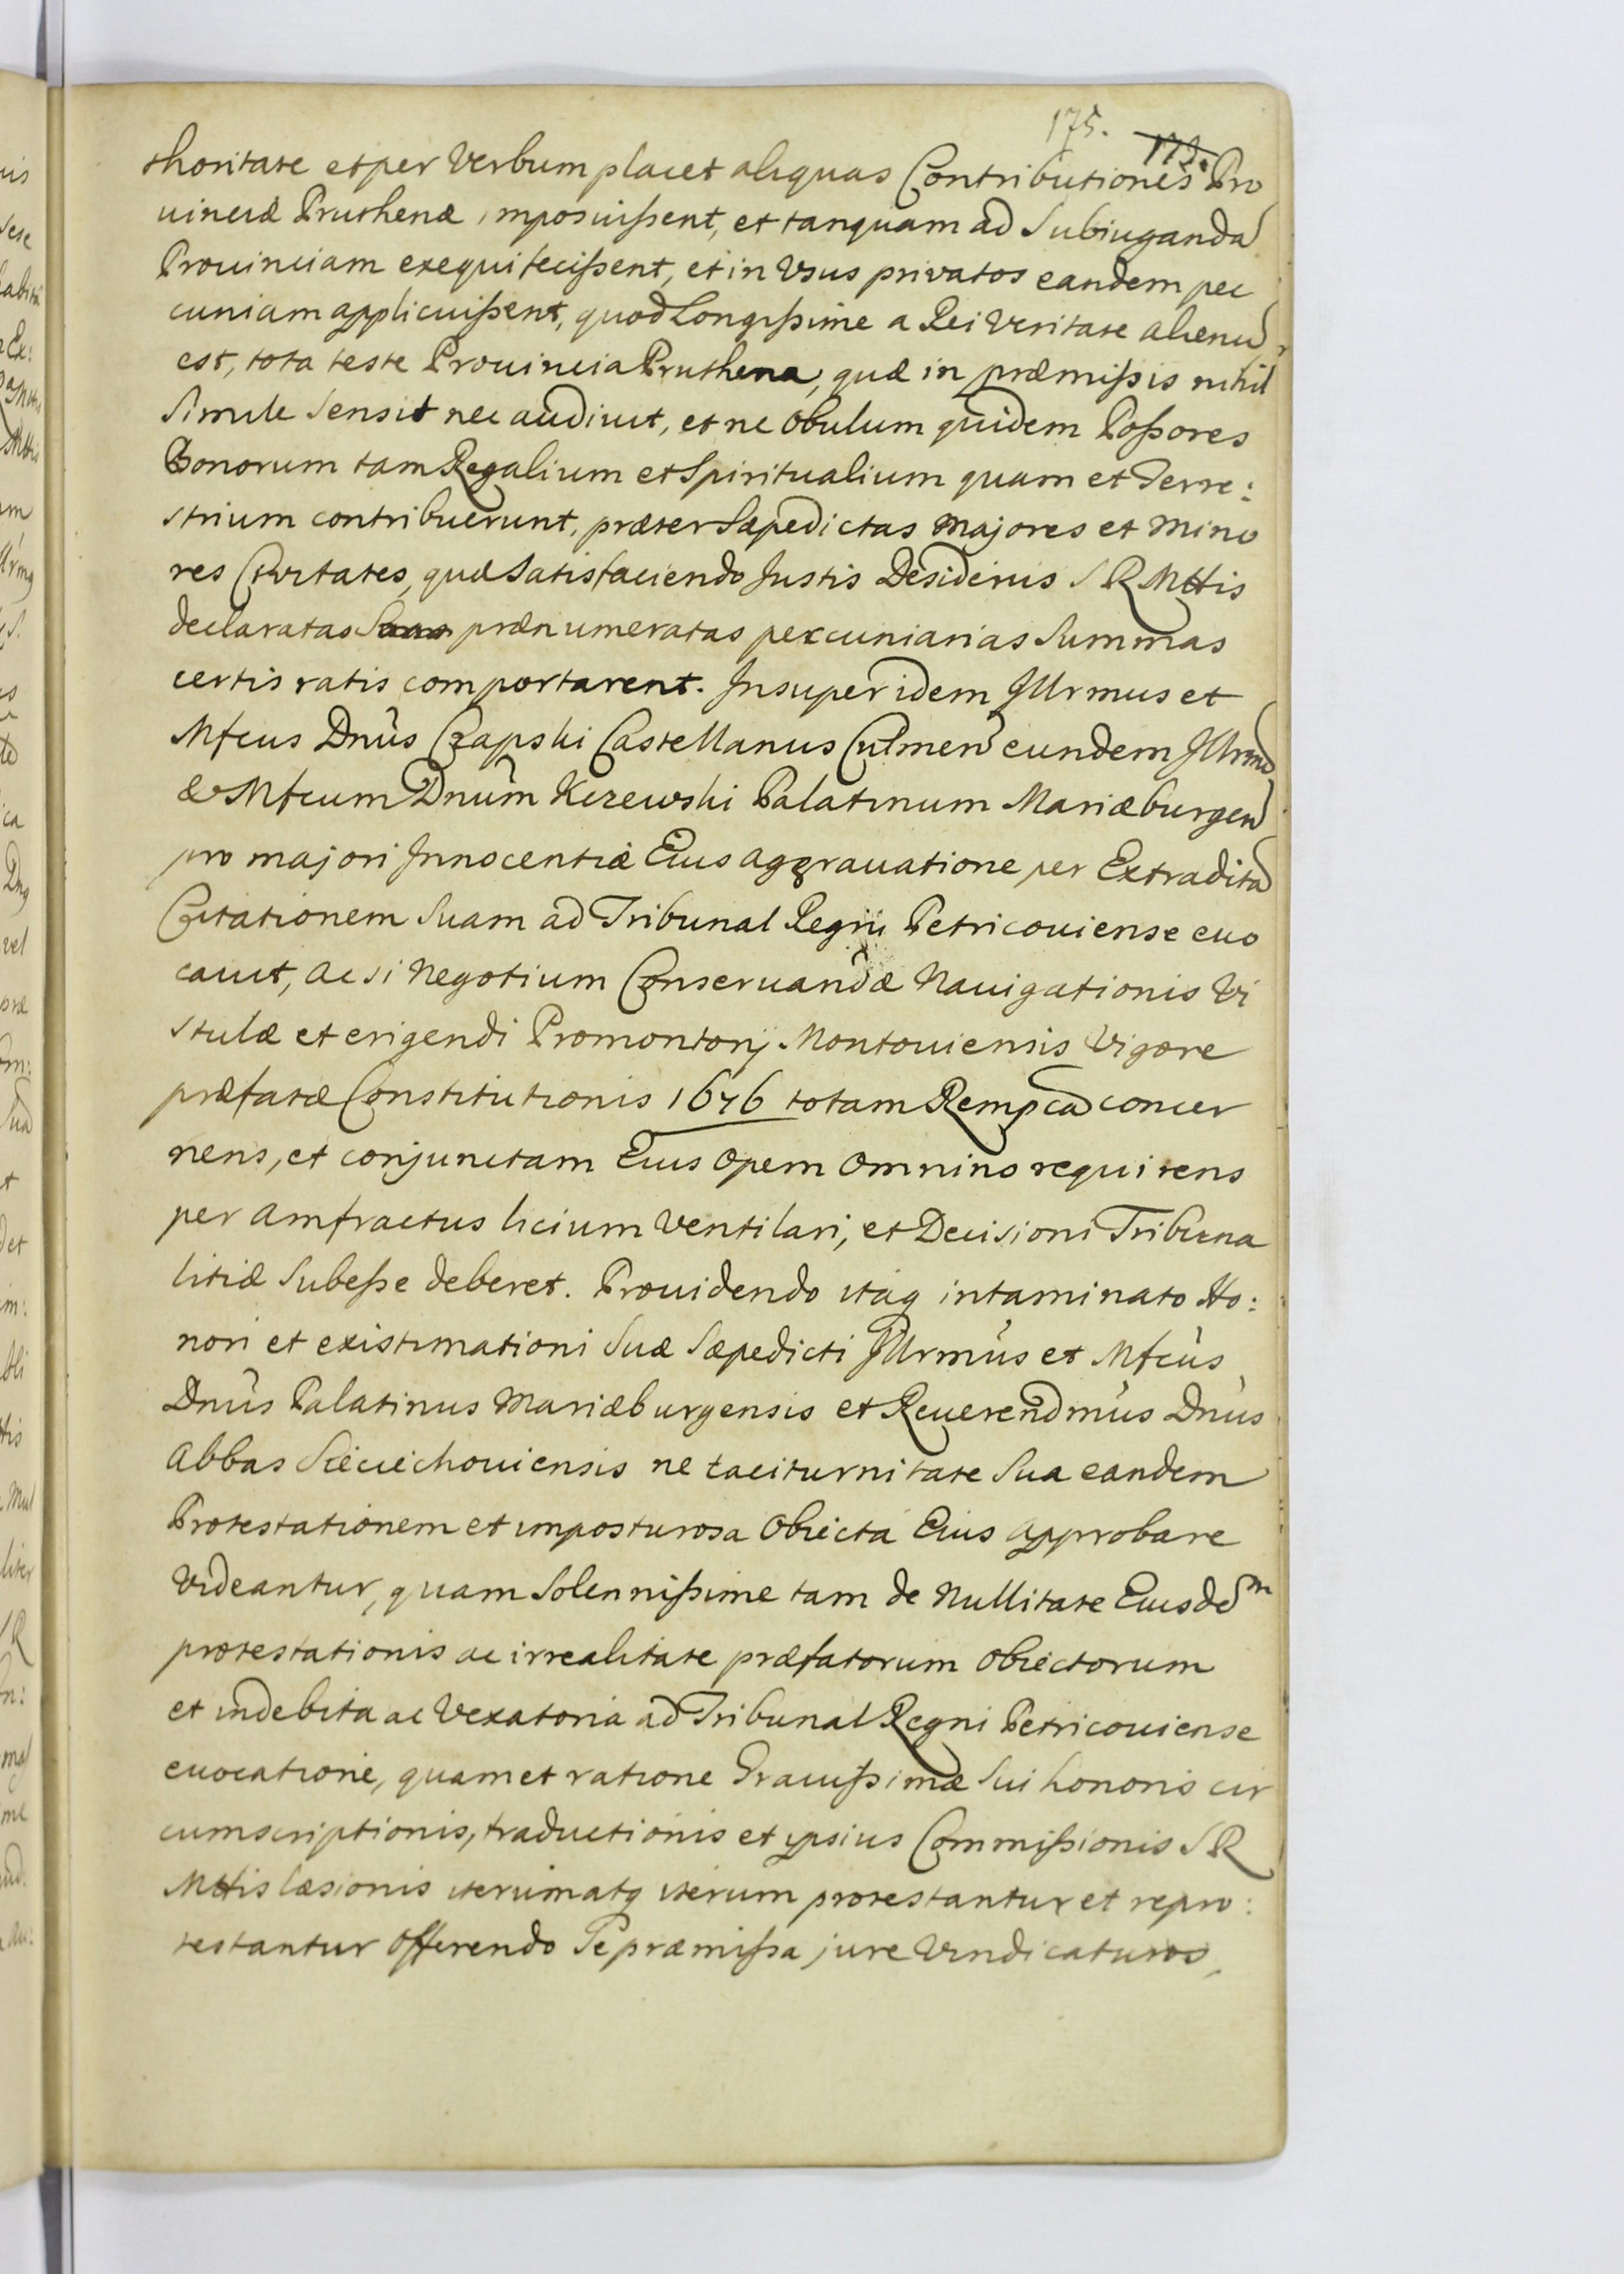 175. 173.
thoritate et per Verbum placet aliquas Contributiones Pro
uinciæ Pruthenæ imposuißent, et tanquam ad Subiugandã
Prouinciam exequi fecißent, et in Vsus privatos eandem pec
cuniam applicuißent, quod Longißime a Rei Veritate alienũ
est, tota teste Prouincia Pruthena, quæ in præmißis nihil
Simile Sensit nec audiuit, et ne Obulum quidem Poßores
Bonorum tam Regalium et Spiritualium quam et Terre:
strium contribuerunt, præter Sæpedictas Majores et Mino
res Ciuitates, quæ Satisfaciendo Justis Desiderijs S R Mttis
declaratas Suas prænumeratas peccuniarias Summas
certis ratis comportarent. Insuper idem Jllrmus et
Mfcus Dnûs Czapski Castellanus Culmen̄ eundem Jllrmũ
& Mfcum Dnûm Kczewski Palatinum Mariæburgen̄
pro majori Innocentiæ Eius aggrauatione per Extraditã
Citationem Suam ad Tribunal Regni Petricouiense euo
cauit, ac si Negotium Conseruandæ Nauigationis Vi
stulæ et erigendi Promontorij Montouiensis Vigore
præfatæ Constitutionis 1676 totam Rempcã concer
nens, et conjunctam Eius Opem Omnino requirens
per Amfractus licium Ventilari, et Decisioni Tribuna
litiæ Subeße deberet. Prouidendo itaq intaminato Ho:
nori et existimationi Suæ Sæpedicti Jllrmûs et Mfcûs
Dnûs Palatinus Mariæburgensis et Reuerendmûs Dnûs
Abbas Sieciechouiensis ne taciturnitate Sua eandem
Protestationem et imposturosa Obiecta Eius Approbare
Videantur, quam Solennißime tam de Nullitate Eiusdem
protestationis ac irrealitate præfatorum Obiectorum
et indebita ac Vexatoria ad Tribunal Regni Petricouiense
euocatione, quam et ratione Grauißimæ Sui honoris cir
cumscriptionis, traductionis et ipsius Commißionis S R
Mttis læsionis iterum atq iterum protestantur et repro:
testantur Offerendo Se præmißa jure Vindicaturos,